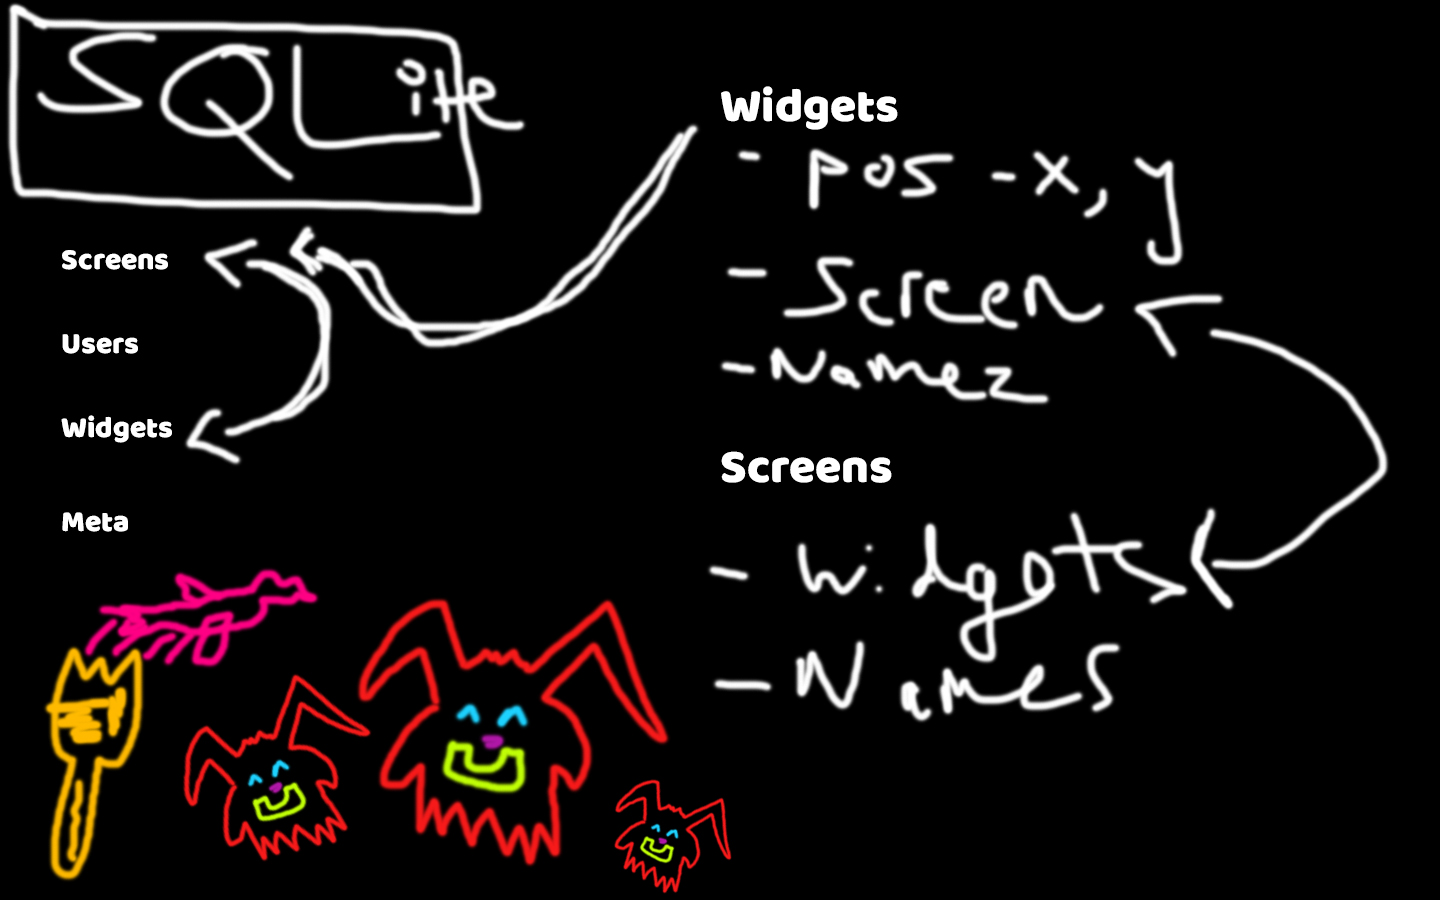 SQLite
Screens
Users
Widgets
Meta
Widgets
- pos - x, y
- Screen
- Namez
Screens
- Widgots
- Names